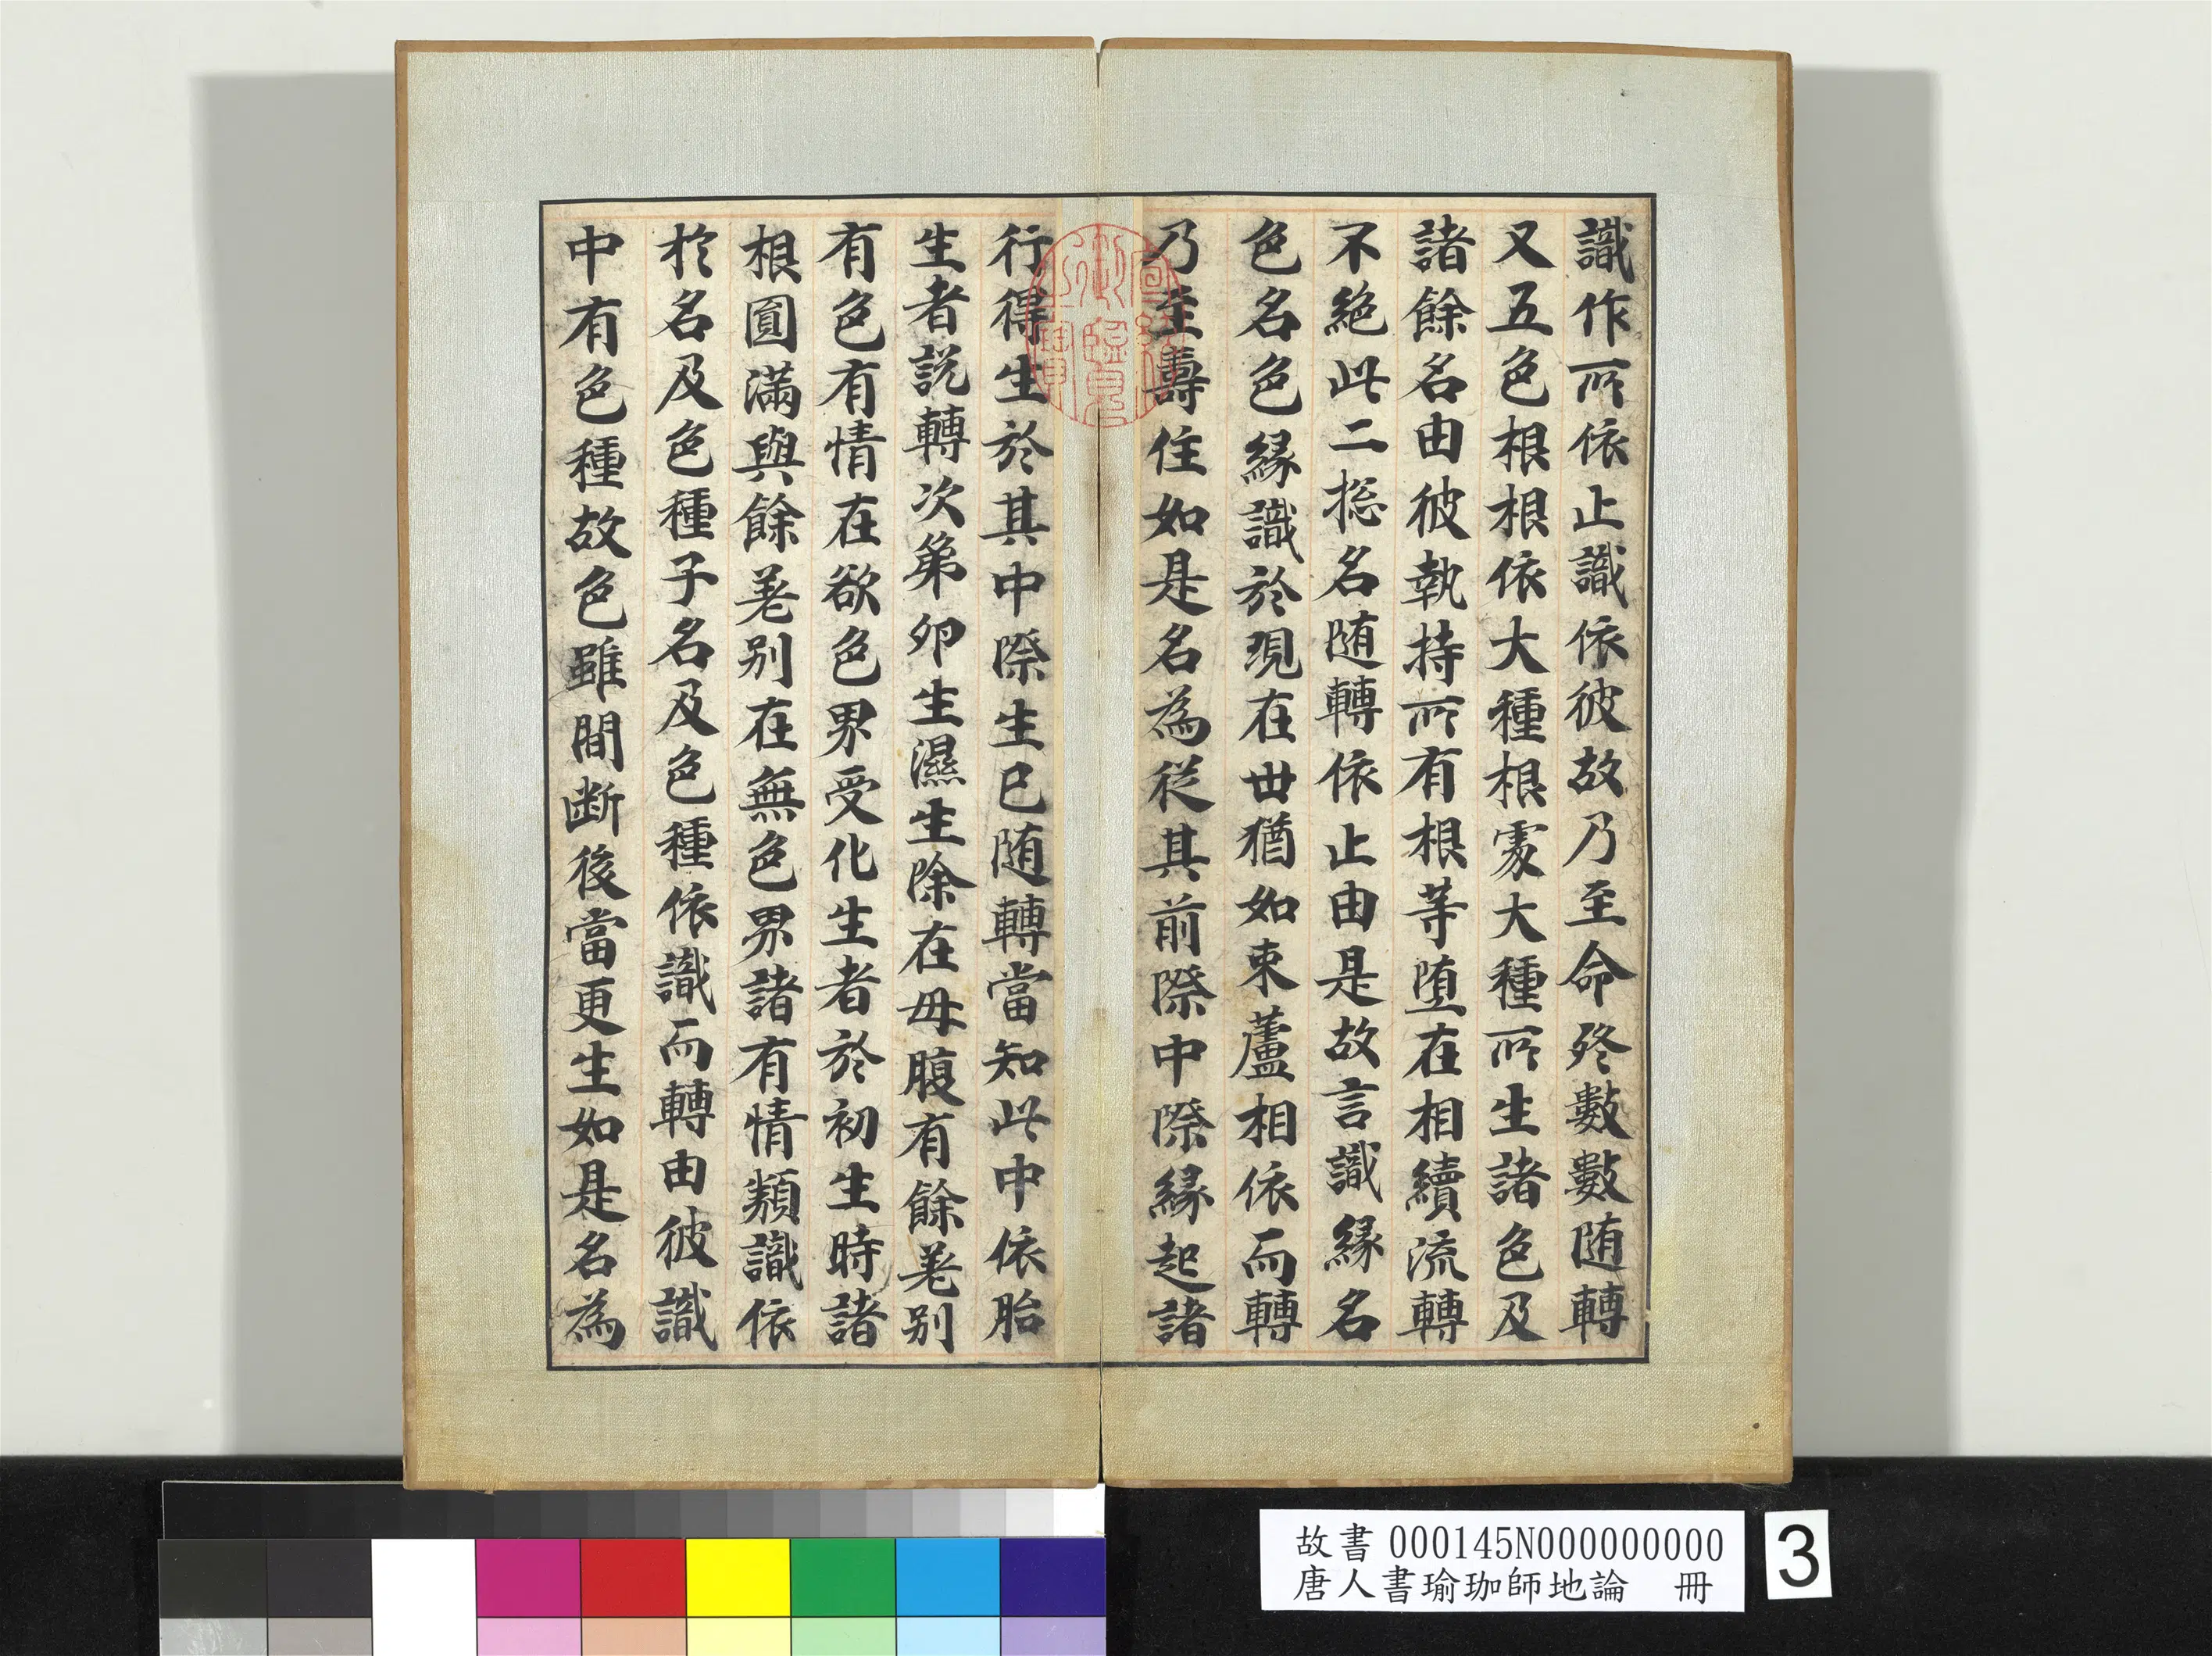 識作所依止識依彼故乃至命終數數随轉
又五色根根依大種根處大種所生諸色及
諸餘名由彼執持所有根等堕在相續流轉
不絶此二揔名随轉依止由是故言識縁名
色名色縁識於現在世猶如束蘆相依而轉
乃至壽住如是名為従其前際中際縁起諸
行得生於其中際生已随轉當知此中依胎
生者説轉次第卵生濕生除在母腹有餘差别
有色有情在欲色界受化生者於初生時諸
根圓滿與餘差别在無色界諸有情類識依
於名及色種子名及色種依識而轉由彼識
中有色種故色雖間断後當更生如是名為
故書 000145N000000000
唐人書瑜珈師地論 冊
3